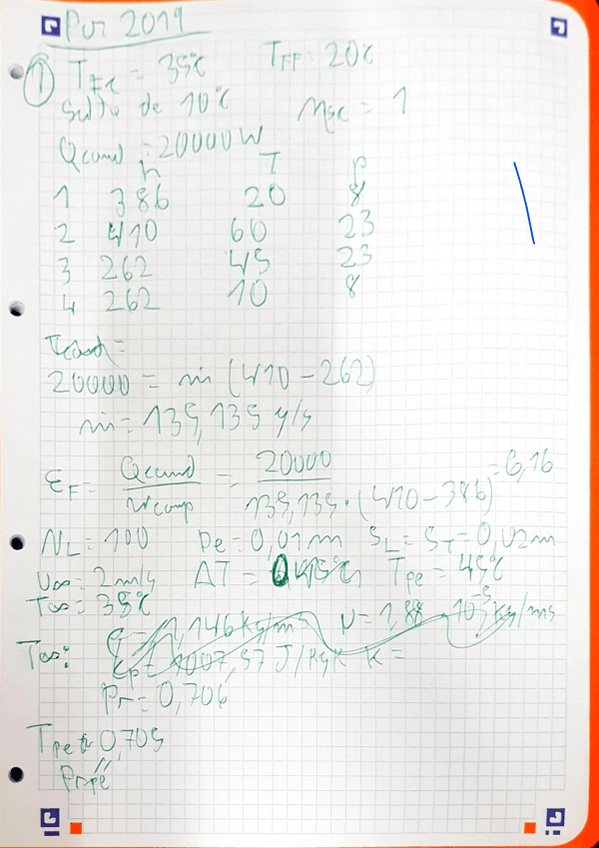 Por 2019
① T_FC = 35°C T_FF = 20°C
Salto de 10°C η_sc = 1
Q_cond = 20000 W
h T p
1 386 20 8
2 410 60 23
3 262 45 23
4 262 10 8
20000 = ṁ (410 - 262)
ṁ = 135,135 g/s
ε_F = Q_cond / W_comp = 20000 / 135,135 · (410 - 386) = 6,16
N_L = 100 De = 0,01 m S_L = S_T = 0,02 m
u∞ = 2 m/s ΔT = T_pe = 45°C
T∞ = 35°C
T∞: = 1,146 kg/m³ μ = 1,88 · 10⁻⁵ kg/ms
Cp = 1007,57 J/kgK K =
Pr = 0,706
T_pe 0,705
Pr_pe